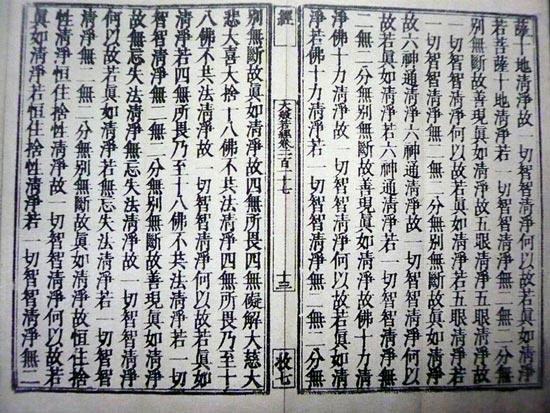 薩十地清淨故一切智智清淨何以故若眞如清淨
若菩薩十地清淨若一切智智清淨無二無二分無
別無斷故善現眞如清淨故五眼清淨五眼清淨
故一切智智清淨何以故若眞如清淨若五眼清淨
若一切智智清淨無二無二分無別無斷故眞如清淨
故六神通清淨六神通清淨故一切智智清淨何以
故若眞如清淨若六神通清淨若一切智智清淨無
二無二分無別無斷故善現眞如清淨故佛十力清
淨佛十力清淨故一切智智清淨何以故若眞如清
淨若佛十力清淨若一切智智清淨無二無二分無
經
大般若經卷二百二十七
十三
枚七
別無斷故眞如清淨故四無所畏四無礙解大慈大
悲大喜大捨十八佛不共法清淨四無所畏乃至十
八佛不共法清淨故一切智智清淨何以故若眞如
清淨若四無所畏乃至十八佛不共法清淨若一切
智智清淨無二無二分無別無斷故善現眞如清淨
故無忘失法清淨無忘失法清淨故一切智智清淨
何以故若眞如清淨若無忘失法清淨若一切智智
清淨無二無二分無別無斷故眞如清淨故恒住捨
性清淨恒住捨性清淨故一切智智清淨何以故若
眞如清淨若恒住捨性清淨若一切智智清淨無二